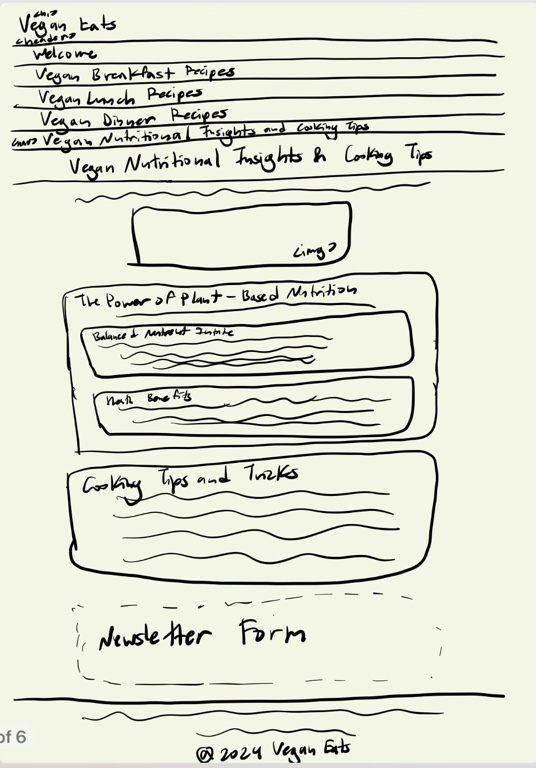 <h1>
Vegan Eats
<header>
Welcome
Vegan Breakfast Recipes
Vegan Lunch Recipes
Vegan Dinner Recipes
Vegan Nutritional Insights and Cooking Tips
Vegan Nutritional Insights & Cooking Tips
<img>
The Power of Plant-Based Nutrition
Balanced Nutrient Intake
Health Benefits
Cooking Tips and Tricks
Newsletter Form
© 2024 Vegan Eats
of 6